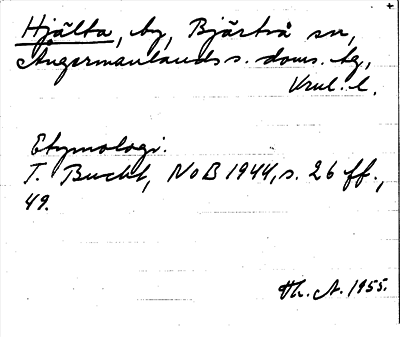 Hjälta, by, Bjärtrå sn,
Ångermanlands s. doms. tg,
Vnl. l.
Etymologi.
T. Bucht, NoB 1944, s. 26 ff.,
49.
Th. A. 1955.